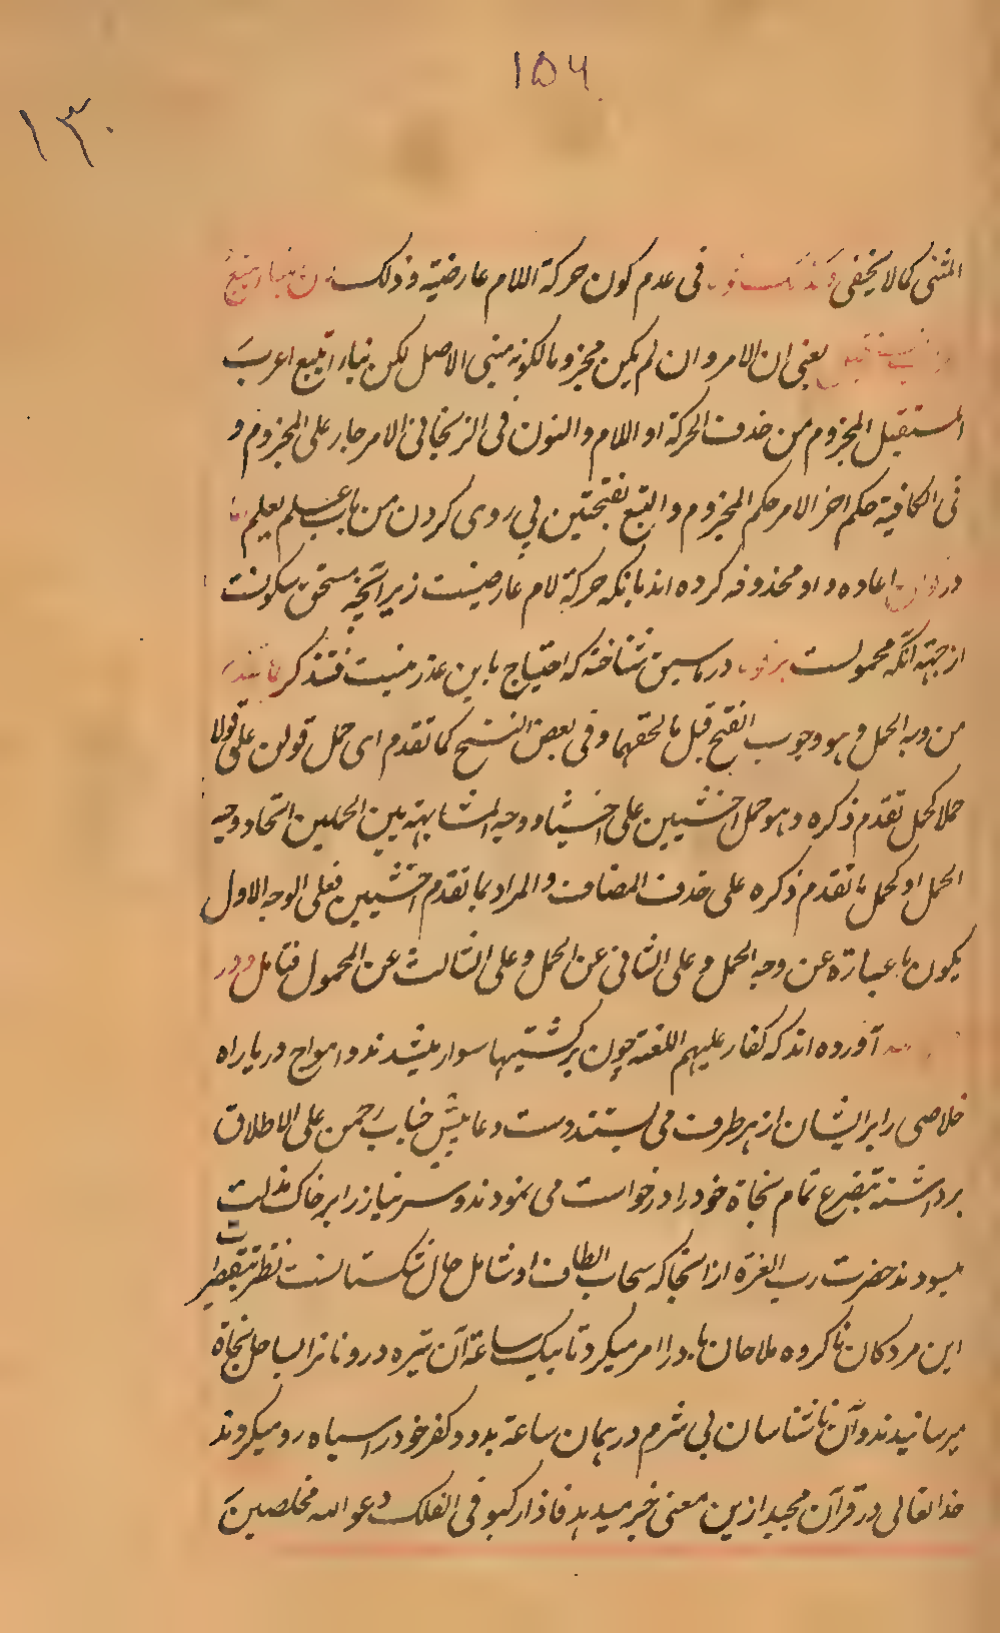 ۱۵۶
۱۳۰
المثنی کما لا یخفی فی عدم کون حرکة اللام عارضیة و ذلک
یعنی ان الامر و ان لم یکن مجزوما لکونه مبنی الاصل لکن بناء اتبع اعرب
المستقبل المجزوم من حذف الحرکة او اللام و النون فی الزنجانی الامر جار علی المجزوم و
فی الکافیة حکم اخر الامر حکم المجزوم و التبع بفتحتین پی روی کردن من باب علم یعلم
اعاده واو محذوفه کرده اند بانکه حرکة لام عارضیست زیرا نچه مستحق سکونست
از جهته آنکه محمولست در ما سبق شناخته که احتیاج باین عذر نیست فتذکر
من وجه الحمل و هو وجوب الفتح قبل ما لحقهما و فی بعض النسخ کما تقدم ای حمل قولن علی قولا
حملا کحمل تقدم ذکره و هو حمل اخشیین علی اخشیا و وجه المشابهة بین الحملین اتحاد وجه
الحمل او کحمل ما تقدم ذکره علی حذف المضاف و المراد بما تقدم اخشیین فعلی الوجه الاول
یکون ما عبارة عن وجه الحمل و علی الثانی عن الحمل و علی الثالث عن المحمول فتامل و در
آورده اند که کفار علیهم اللعنة چون بر کشتیها سوار میشدند و امواج دریا راه
خلاصی را بر ایشان از هر طرف می بستند دست دعا پیش جناب رحمن علی الاطلاق
برداشته بتضرع تمام نجاة خود را درخواست می نمودند و سر نیاز را بر خاک مذلت
میسودند حضرت رب العزة از انجا که سحاب الطاف او شامل حال شکستانست نظر بتقصیرات
این مردکان ناکرده ملاحان باد را امر میکرد تا بیک ساعة آن تیره درونانرا بساحل نجاة
میرسانیدند و آن ناشناسان بی شرم در همان ساعة بدود کفر خود را سیاه رو میکردند
خدا تعالی در قرآن مجید ازین معنی خبر میدهد فاذا رکبوا فی الفلک دعوا الله مخلصین